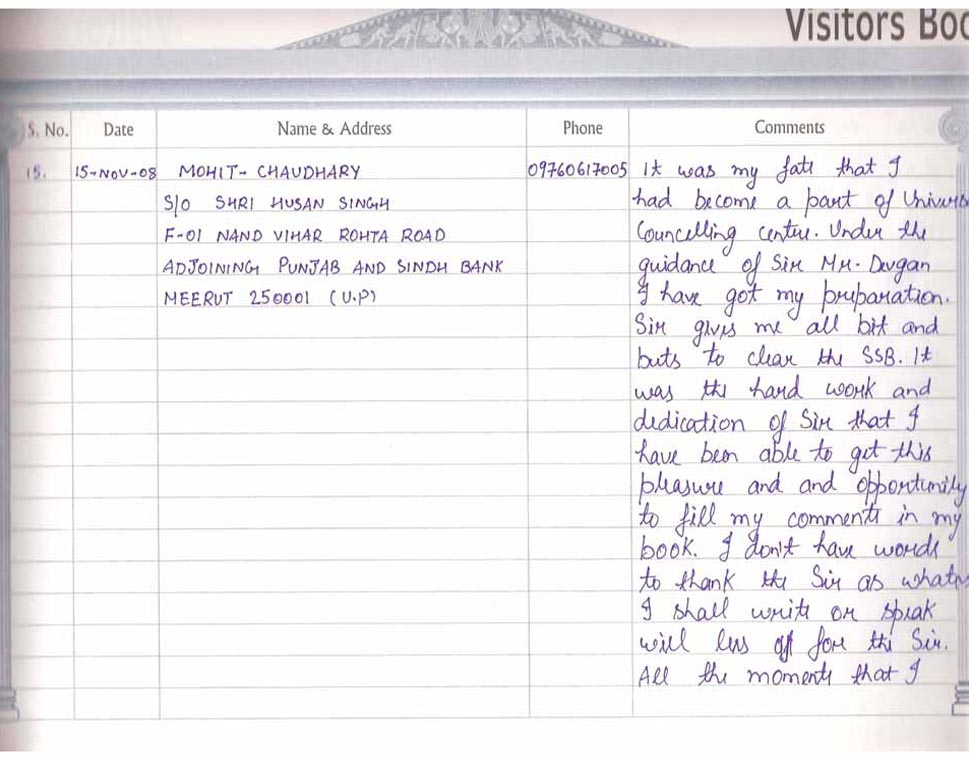 Visitors Boo
S. No. Date Name & Address Phone Comments
15. 15-NOV-08 MOHIT- CHAUDHARY 09760617005 It was my fate that I
S/O SHRI HUSAN SINGH had become a part of Univers
F-01 NAND VIHAR ROHTA ROAD Councelling centre. Under the
ADJOINING PUNJAB AND SINDH BANK guidance of Sir Mr. Devgan
MEERUT 250001 (U.P) I have got my preparation.
Sir gives me all bit and
buts to clear the SSB. It
was the hard work and
dedication of Sir that I
have been able to get this
pleasure and and opportunity
to fill my comments in my
book. I don't have words
to thank the Sir as whatev
I shall write or speak
will less for the Sir.
All the moments that I